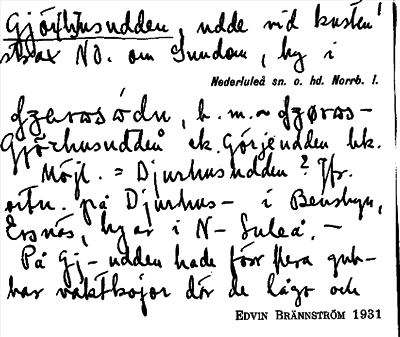 Gjör(h)usudden, udde vid kusten
strax NO. om Sundom, by i
Nederluleå sn. o. hd. Norrb. l.
b. m. ~
Gjörhusudden ek. Görjeudden bk.
Möjl. = Djurhusudden? Jfr.
ortn. på Djurhus- i Bensbyn,
Ersnäs, byar i N- Luleå. –
På Gj-udden hade förr flera gub-
bar vaktkojor där de lågo och
EDVIN BRÄNNSTRÖM 1931